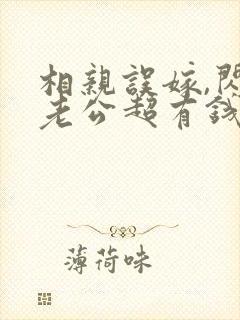 相親誤嫁,閃
老公超有錢
薄荷味